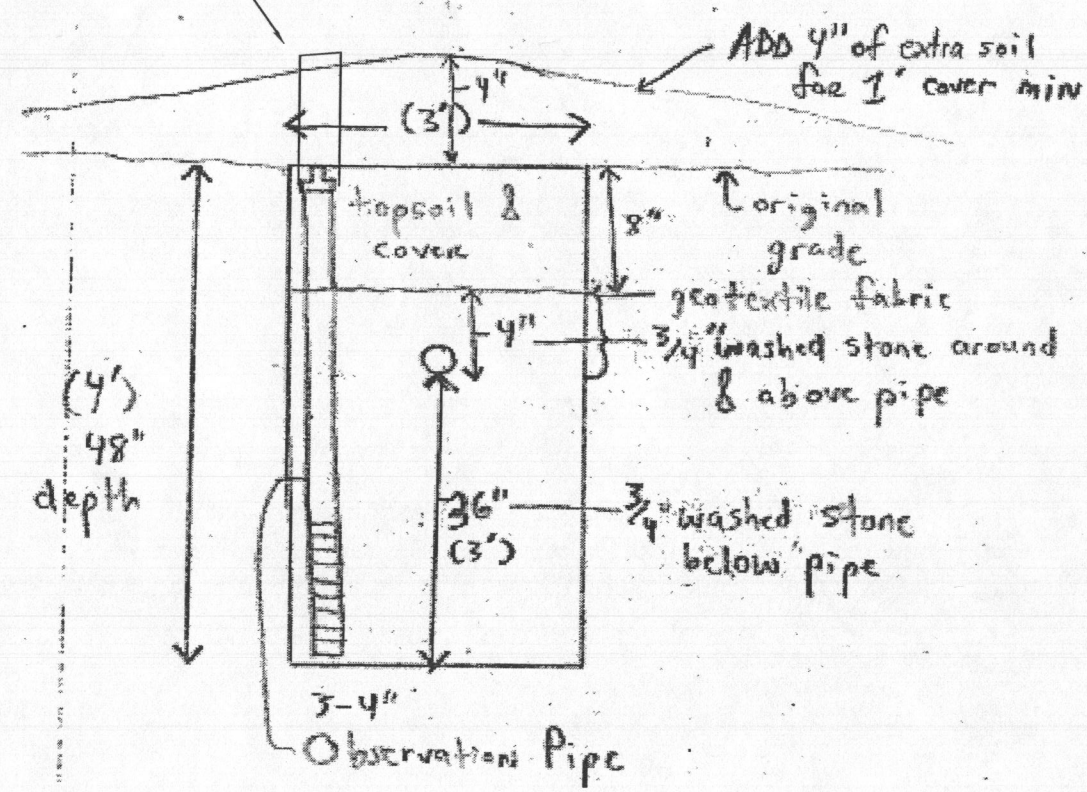 ADD 4" of extra soil
for 1' cover min
4"
(3')
topsoil &
cover
8"
original
grade
geotextile fabric
4"
3/4" washed stone around
& above pipe
(4')
48"
depth
36"
(3')
3/4" washed stone
below pipe
3-4"
Observation Pipe